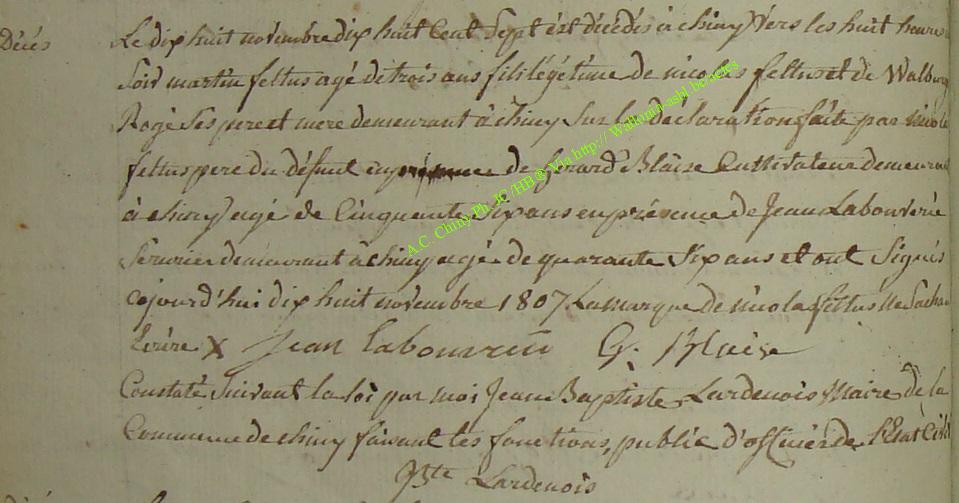 Décés
Le dix huit novémbre dix huit Cent Sept est décédés à chiny Vers les huit heures
Soir martin fettus agé de trois ans fils légétime de nicolas fettus et de Walburg
Rogé Ses pere et mere demeurant à chiny Sur la déclaration faite par nicolas
fettus pere du défunt de Gerard Blaise Cultivateur demeurant
à chiny agé de Cinquante Six ans en présence de Jean Labouverie
Serurier demeurant à chiny agé de quarante Six ans et ont Signés
cejourd'hui dix huit novembre 1807 La marque de nicolas fettus ne Sachant
Ecrire X Jean Labouverie G. Blaise
Constaté Suivant la loi par moi Jean Baptiste Lardenois Maire de la
Commune de chiny faisant les fonctions, public d'officiér de l'Etat Civil
Bte Lardenois
A.C. Chiny Ph. JC /HB@ Via http:// Wallonia-asbl.be/actes